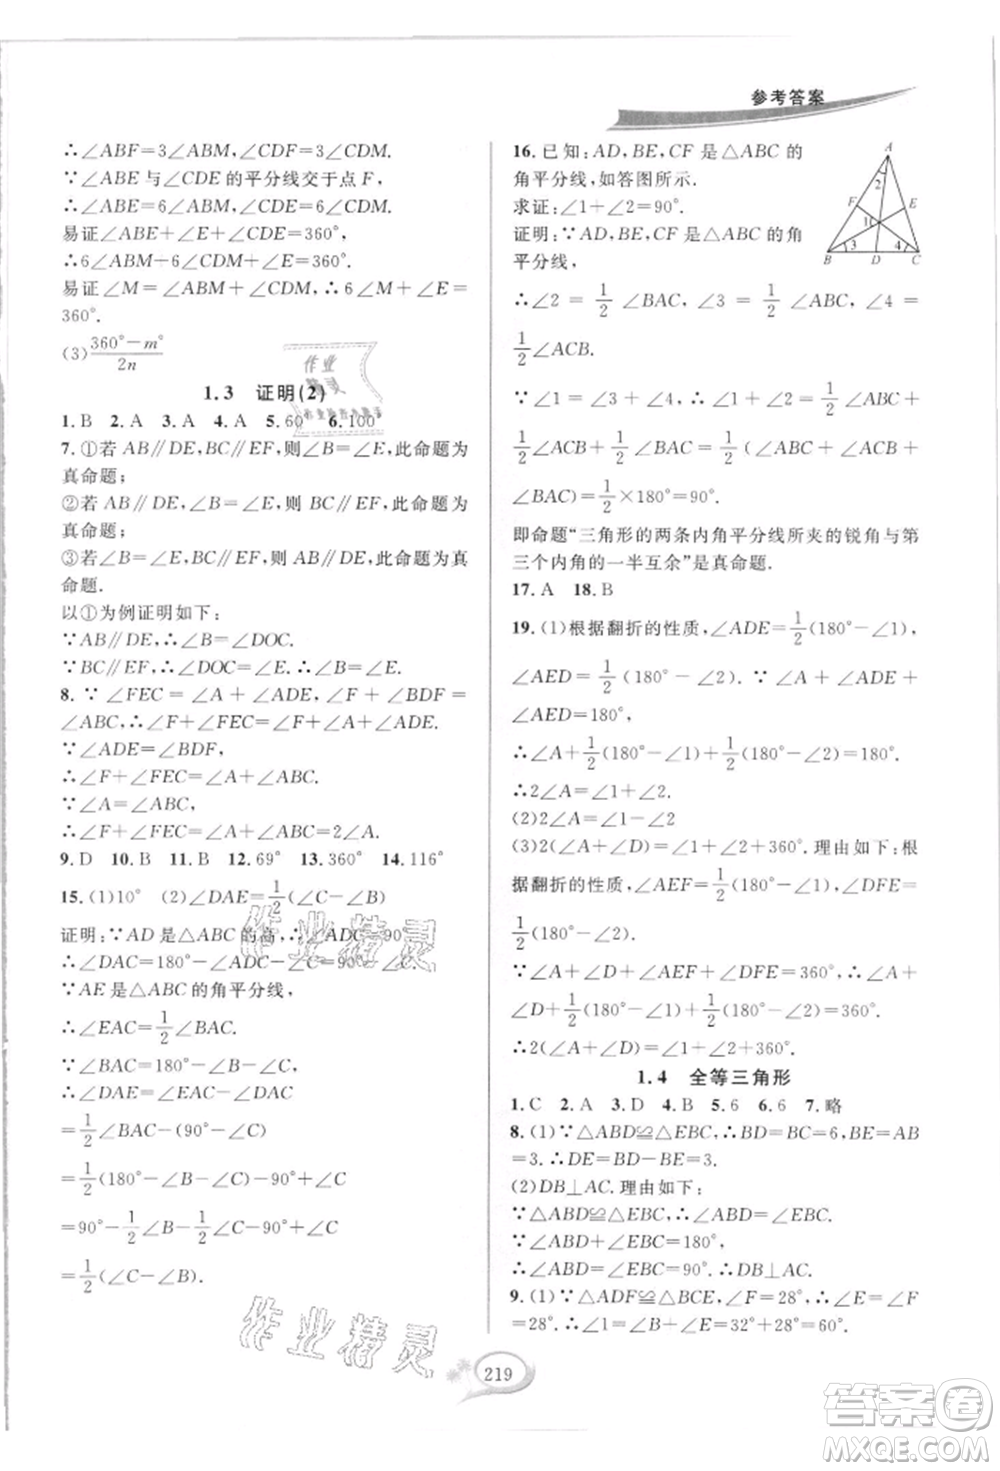 参考答案
∴∠ABF=3∠ABM,∠CDF=3∠CDM.
∵∠ABE与∠CDE的平分线交于点F,
∴∠ABE=6∠ABM,∠CDE=6∠CDM.
易证∠ABE+∠E+∠CDE=360°,
∴6∠ABM+6∠CDM+∠E=360°.
易证∠M=∠ABM+∠CDM,∴6∠M+∠E=
360°.
(3)\frac{360°-m°}{2n}
1.3 证明(2)
1. B 2. A 3. A 4. A 5. 60 6. 100
7. ①若 AB∥DE,BC∥EF,则∠B=∠E,此命题为
真命题;
②若 AB∥DE,∠B=∠E,则 BC∥EF,此命题为
真命题;
③若∠B=∠E,BC∥EF,则 AB∥DE,此命题为真
命题.
以①为例证明如下:
∵AB∥DE,∴∠B=∠DOC.
∵BC∥EF,∴∠DOC=∠E,∴∠B=∠E.
8. ∵∠FEC=∠A+∠ADE,∠F+∠BDF=
∠ABC,∴∠F+∠FEC=∠F+∠A+∠ADE.
∵∠ADE=∠BDF,
∴∠F+∠FEC=∠A+∠ABC.
∵∠A=∠ABC,
∴∠F+∠FEC=2∠A.
9. D 10. B 11. B 12. 69° 13. 360° 14. 116°
15. (1)10° (2)∠DAE=\frac{1}{2}(∠C-∠B)
证明:∵AD是△ABC的高,∴∠ADC=90°,
∴∠DAC=180°-∠ADC-∠C=90°-∠C.
∵AE是△ABC的角平分线,
∴∠EAC=\frac{1}{2}∠BAC.
∵∠BAC=180°-∠B-∠C,
∴∠DAE=∠EAC-∠DAC
=\frac{1}{2}∠BAC-(90°-∠C)
=\frac{1}{2}(180°-∠B-∠C)-90°+∠C
=90°-\frac{1}{2}∠B-\frac{1}{2}∠C-90°+∠C
=\frac{1}{2}(∠C-∠B).
16. 已知:AD,BE,CF是△ABC的
角平分线,如答图所示.
求证:∠1+∠2=90°.
证明:∵AD,BE,CF是△ABC的角
平分线,
A
2
F
E
1
3
4
B
D
C
∴∠2=\frac{1}{2}∠BAC,∠3=\frac{1}{2}∠ABC,∠4=
\frac{1}{2}∠ACB.
∵∠1=∠3+∠4,∴∠1+∠2=\frac{1}{2}∠ABC+
\frac{1}{2}∠ACB+\frac{1}{2}∠BAC=\frac{1}{2}(∠ABC+∠ACB+
∠BAC)=\frac{1}{2}×180°=90°.
即命题“三角形的两条内角平分线所夹的锐角与第
三个内角的一半互余”是真命题.
17. A 18. B
19. (1)根据翻折的性质,∠ADE=\frac{1}{2}(180°-∠1),
∠AED=\frac{1}{2}(180°-∠2).∵∠A+∠ADE+
∠AED=180°,
∴∠A+\frac{1}{2}(180°-∠1)+\frac{1}{2}(180°-∠2)=180°.
∴2∠A=∠1+∠2.
(2)2∠A=∠2
(3)2(∠A+∠D)=∠1+∠2+360°.理由如下:根
据翻折的性质,∠AEF=\frac{1}{2}(180°-∠1),∠DFE=
\frac{1}{2}(180°-∠2).
∵∠A+∠D+∠AEF+∠DFE=360°,∴∠A+
∠D+\frac{1}{2}(180°-∠1)+\frac{1}{2}(180°-∠2)=360°.
∴2(∠A+∠D)=∠1+∠2+360°.
1.4 全等三角形
1. C 2. A 3. D 4. B 5. 6 6. 6 7. 略
8. (1)∵△ABD≌△EBC,∴BD=BC=6,BE=AB
=3.∴DE=BD-BE=3.
(2)DB⊥AC.理由如下:
∵△ABD≌△EBC,∴∠ABD=∠EBC.
∵∠ABD+∠EBC=180°,
∴∠ABD=∠EBC=90°.∴DB⊥AC.
9. (1)∵△ADF≌△BCE,∠F=28°,∴∠E=∠F
=28°.∴∠1=∠B+∠E=32°+28°=60°.
219
作业精灵
作业精灵
作业精灵
答案卷
MXQE.COM